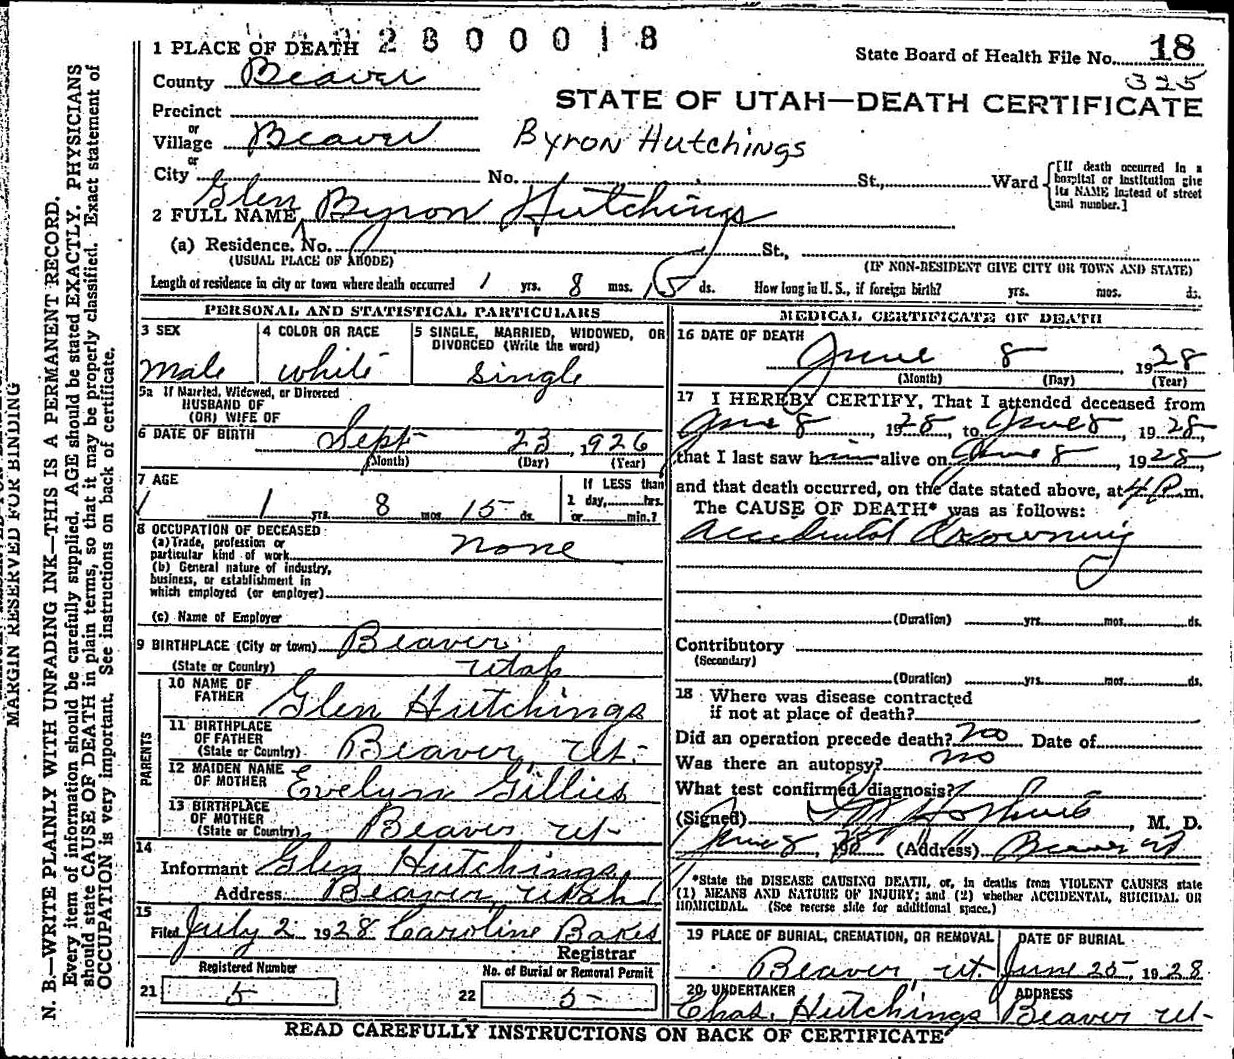 2 8 0 0 0 1 8
1 PLACE OF DEATH
State Board of Health File No. 18
325
County Beaver
STATE OF UTAH—DEATH CERTIFICATE
Precinct
or
Village Beaver
Byron Hutchings
or
City No. St., Ward
[If death occurred in a hospital or institution give its NAME instead of street and number.]
Glen
2 FULL NAME Byron Hutchings
(a) Residence. No. St.,
(USUAL PLACE OF ABODE)
(IF NON-RESIDENT GIVE CITY OR TOWN AND STATE)
Length of residence in city or town where death occurred 1 yrs. 8 mos. 15 ds. How long in U. S., if foreign birth? yrs. mos. ds.
PERSONAL AND STATISTICAL PARTICULARS
3 SEX
male
4 COLOR OR RACE
white
5 SINGLE, MARRIED, WIDOWED, OR DIVORCED (Write the word)
single
5a If Married, Widowed, or Divorced
HUSBAND OF
(OR) WIFE OF
6 DATE OF BIRTH Sept 23, 1926
(Month) (Day) (Year)
7 AGE
1 yrs. 8 mos. 15 ds.
If LESS than
1 day, hrs.
or min.?
8 OCCUPATION OF DECEASED
(a) Trade, profession or
particular kind of work none
(b) General nature of industry,
business, or establishment in
which employed (or employer)
(c) Name of Employer
9 BIRTHPLACE (City or town) Beaver
(State or Country) Utah
PARENTS
10 NAME OF
FATHER Glen Hutchings
11 BIRTHPLACE
OF FATHER
(State or Country) Beaver, Ut.
12 MAIDEN NAME
OF MOTHER Evelyn Gillies
13 BIRTHPLACE
OF MOTHER
(State or Country) Beaver Ut
14
Informant Glen Hutchings
Address Beaver, Utah
15
Filed July 2 1928 Caroline
Registrar
Registered Number
21 5
No. of Burial or Removal Permit
22 5
MEDICAL CERTIFICATE OF DEATH
16 DATE OF DEATH
June 8 1928
(Month) (Day) (Year)
17 I HEREBY CERTIFY, That I attended deceased from
June 8, 1928, to June 8, 1928
that I last saw him alive on June 8, 1928,
and that death occurred, on the date stated above, at 4 P. m.
The CAUSE OF DEATH* was as follows:
Accidental Drowning
(Duration) yrs. mos. ds.
Contributory
(Secondary)
(Duration) yrs. mos. ds.
18 Where was disease contracted
if not at place of death?
Did an operation precede death? no Date of
Was there an autopsy? no
What test confirmed diagnosis?
(Signed) , M. D.
June 8, 1928 (Address) Beaver Ut
*State the DISEASE CAUSING DEATH, or, in deaths from VIOLENT CAUSES state
(1) MEANS AND NATURE OF INJURY; and (2) whether ACCIDENTAL, SUICIDAL OR
HOMICIDAL. (See reverse side for additional space.)
19 PLACE OF BURIAL, CREMATION, OR REMOVAL
Beaver, Ut.
DATE OF BURIAL
June 1928
20 UNDERTAKER
Chas. Hutchings
ADDRESS
Beaver Ut
READ CAREFULLY INSTRUCTIONS ON BACK OF CERTIFICATE
MARGIN RESERVED FOR BINDING
N. B.—WRITE PLAINLY WITH UNFADING INK—THIS IS A PERMANENT RECORD.
Every item of information should be carefully supplied. AGE should be stated EXACTLY. PHYSICIANS
should state CAUSE OF DEATH in plain terms, so that it may be properly classified. Exact statement of
OCCUPATION is very important. See instructions on back of certificate.